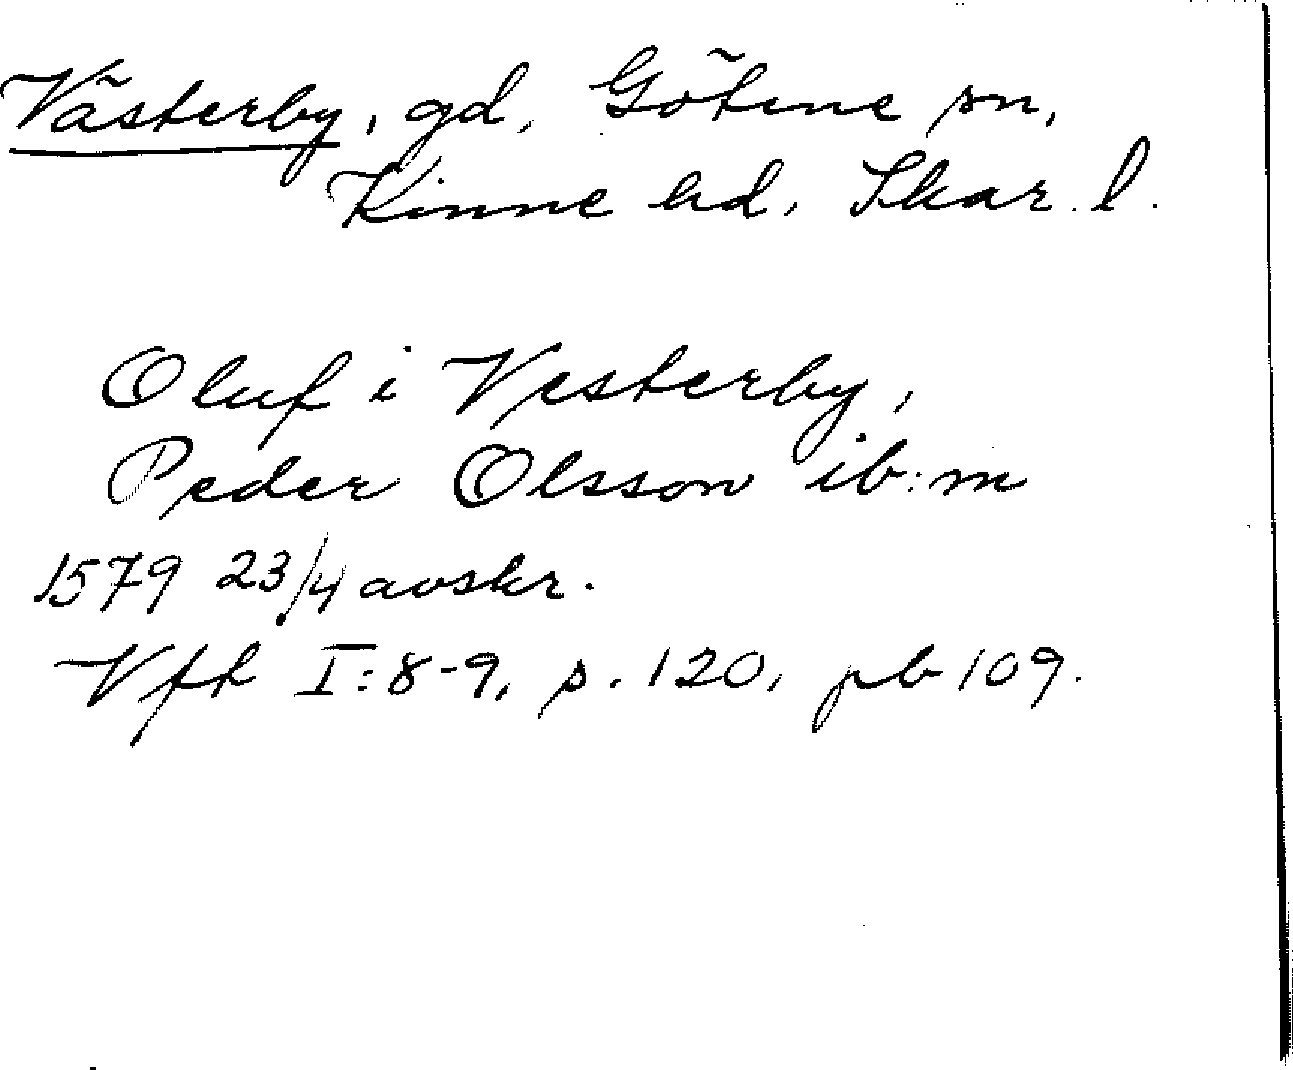 Västerby, gd, Götene sn,
Kinne hd, Skar. l.
Oluf i Vesterby,
Peder Olsson ib:m
1579 23/4 avskr.
Vfh I:8-9, p. 120, pb 109.